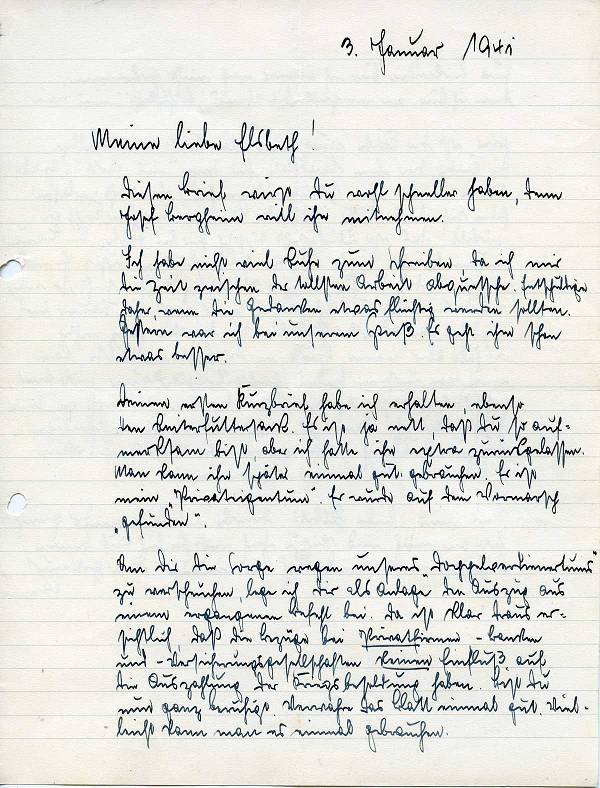 3. Januar 1941
Meine liebe Elsbeth!
Diesen Brief wirst Du wohl schneller haben, denn
Josef Bergheim will ihn mitnehmen.
Ich habe nicht viel Ruhe zum Schreiben da ich mir
die Zeit zwischen der tollsten Arbeit abquetsche. Entschuldige
daher, wenn die Gedanken etwas flüchtig werden sollten.
Gestern war ich bei unserem Spieß. Es geht ihm schon
etwas besser.
Deinen ersten Kurzbrief habe ich erhalten, ebenso
den Reiterfuttersack. Es ist ja nett, daß Du so auf-
merksam bist, aber ich hatte ihn extra zurückgelassen.
Man kann ihn später einmal gut gebrauchen. Er ist
mein "Privateigentum". Er wurde auf dem Vormarsch
„gefunden“.
Um Dir die Sorge wegen unseres "Doppelverdienertums"
zu verscheuchen, lege ich Dir als Anlage den Auszug aus
einem ergangenen Befehl bei. Da ist klar draus er-
sichtlich, daß die Bezüge bei Privatfirmen -banken
und -Versicherungsgesellschaften keinen Einfluß auf
die Auszahlung der Kriegsbesoldung haben. Bist Du
nun ganz beruhigt. Verwahre das Blatt einmal gut. Viel-
leicht kann man es einmal gebrauchen.